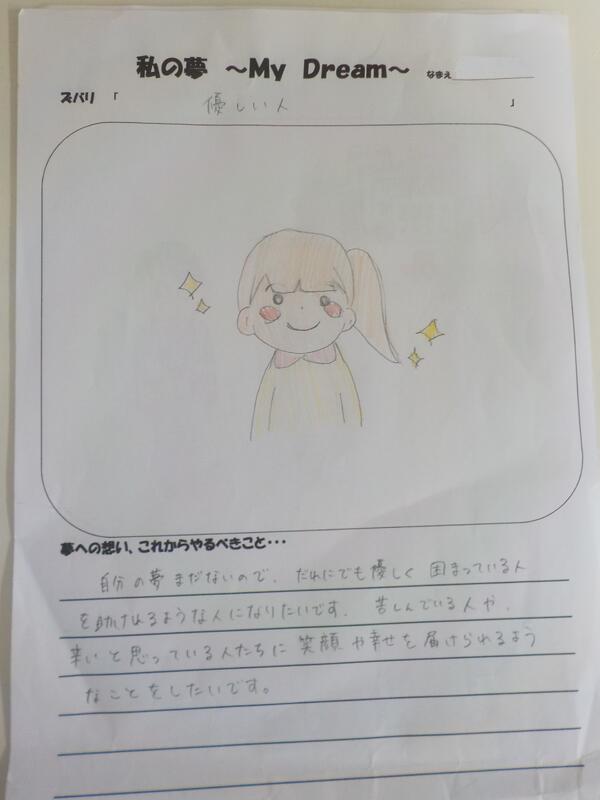 私の夢 ～My Dream～ なまえ
ズバリ 「 優しい人 」
夢への想い、これからやるべきこと・・・
自分の夢まだないので、だれにでも優しく 困まっている人
を助けれるような人になりたいです。苦しんでいる人や、
辛いと思っている人たちに笑顔や幸せを届けられるよう
なことをしたいです。